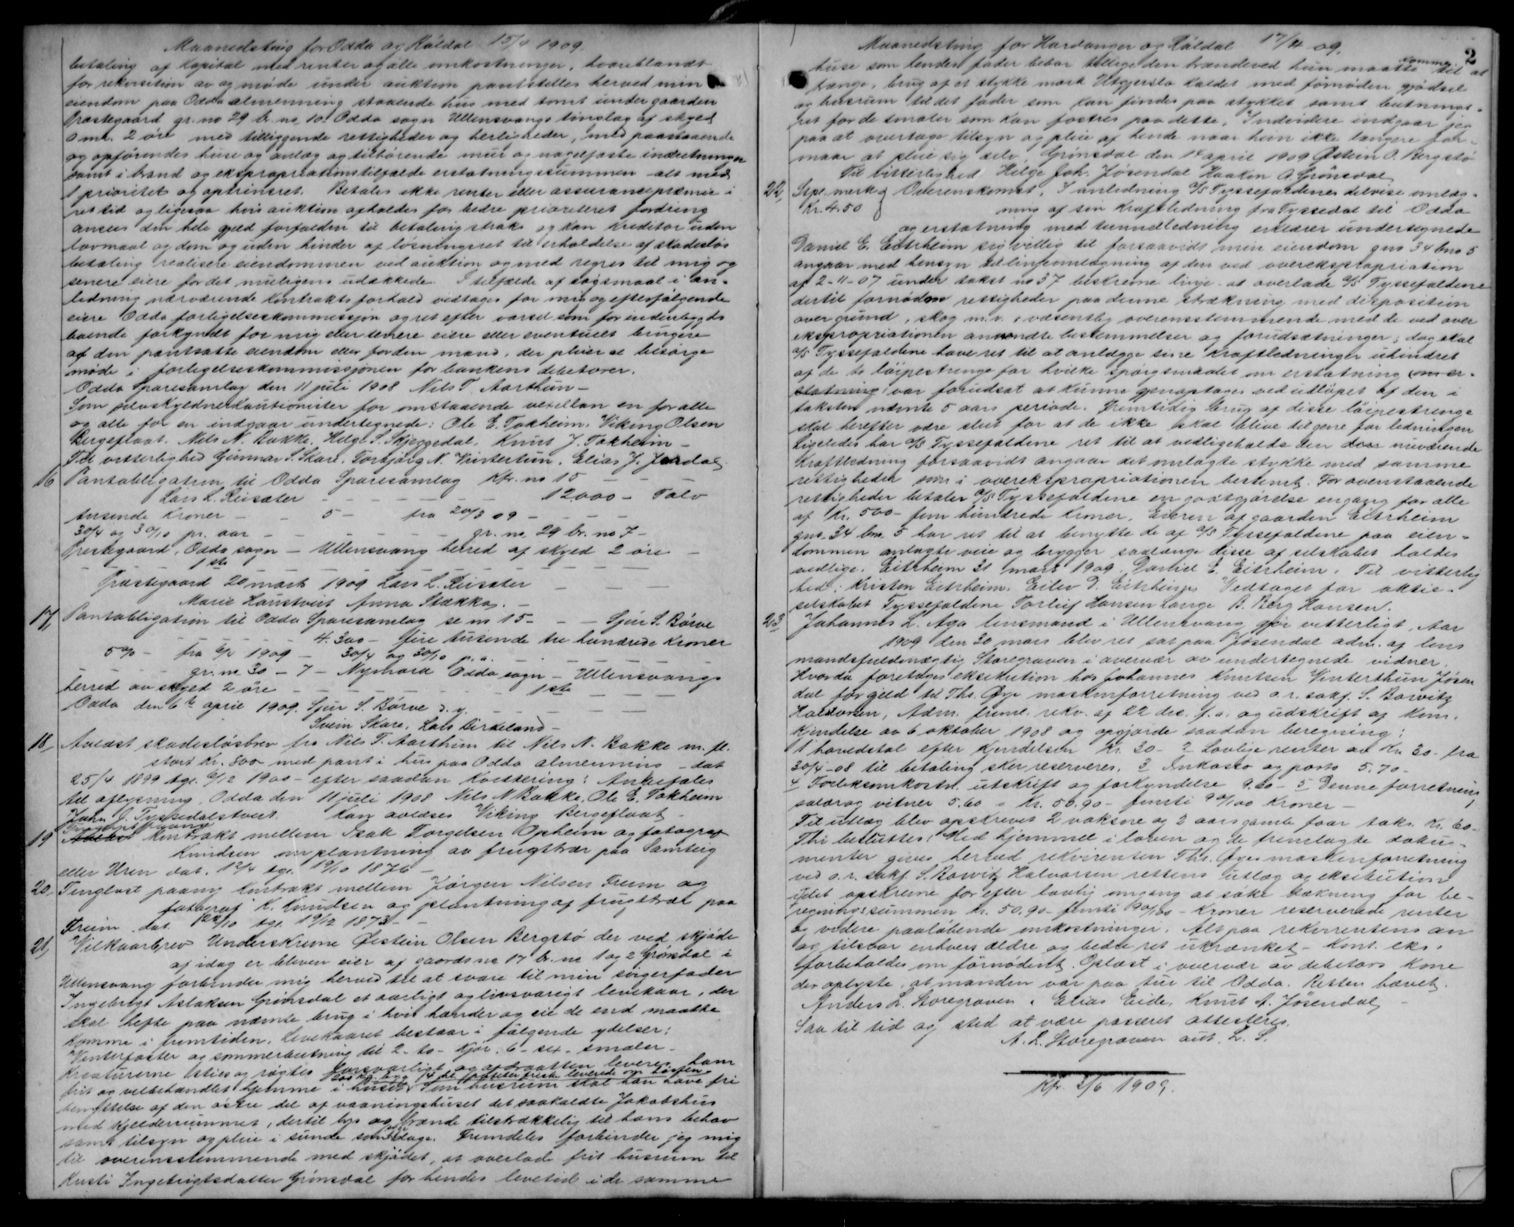 Maanedsting for Odda og Røldal 15/4 1909.
betaling af kapital med renter og alle omkostninger, hvoriblandt
for rekvisition av og møde under auktion pantstilles herved min
eiendom paa Odda almenning staaende hus med tomt under gaarden
Prestegaard gr. no 29 br. no 10 Odda sogn Ullensvangs tinglag af skyld
0 mk. 2 øre med tilliggende rettigheder og herligheder, med paastaaende
og opførendes huse og anlæg og tilhørende mur og nagelfaste indretninger
samt i brand og ekspropriationstilfælde erstatningssummen alt med
1 prioritet og opt rinsret. Betales ikke renter eller assurancepræmie i
ret tid og ligesaa hvis auktion afholdes for bedre prioriteret fordring
ansees den hele gjæld forfalden til betaling straks og kan kreditor uden
lovmaal og dom og uden hinder af løsningsret til erholdelse af skadesløs
betaling realisere eiendommen ved auktion og med regres til mig og
senere eiere for det muligens udækkede. I tilfælde af søgsmaal i an-
ledning nærværende kontrakts forhold vedtages for mig og efterfølgende
eiere Odda forligelseskommission og ret efter varsel som for indenbygds
boende forkyndt for mig eller senere eiere eller eventuelt brugere
af den pantsatte eiendom eller for den mand, der pleier at besørge
møde i forligelseskommissjonen for bankens debitorer.
Odda Sparesamlag den 11 juli 1908 Nils T. Aarthun -
Som selvskyldnerkautionister for omstaaende vexellaan en for alle
og alle for en indgaar undertegnede: Ole E. Tokheim. Viking Olsen
Bergeflaat. Nils N. Bakke. Helge S. Skjeggedal, Knut J. Tokheim -
Til vitterlighed Gunnar S. Skare. Torbjørg N. Vintertun. Elias J. Jordal
16 Pantobligation til Odda Sparesamlag Kfr. no 15 -
Lars L. Reisæter - - - 12000 - Tolv
tusende Kroner - - 5 - fra 20/3 09 - - -
30/4 og 30/10 pr. aar - - - gr. no 29 br. no 7 -
Prestegaard, Odda sogn - Ullensvang herred af skyld 2 øre -
- - - 1ste - - -
Præstegaard 20 mark 1909 Lars L. Reisæter - -
Marie Haustveit Anna Stakka. -
17, Pantobligation til Odda Sparesamlag se no 15 - - - Sjur S. Børve
4.300 - fire tusende tre hundrede Kroner
5 % - fra 6/4 1909 - 30/4 og 30/10 p.a. -
gr. no 30 - 7 - Nymark Odda sogn - Ullensvangs
herred av skyld 2 øre - - - 1ste - - -
Odda den 6te april 1909. Sjur S. Børve d.y. - - -
Svein Skare, Lars Birkeland -
18, Avlæst skadesløsbrev fra Nils T. Aarthun til Nils N. Bakke m. fl.
stort Kr. 300 med pant i hus paa Odda almenning dat
25/4 1899 tgl. 9/2 1900 - efter saadan kvittering: Anbefales
til aflysning. Odda den 11 juli 1908 Nils N Bakke, Ole E. Tokheim
John J. Tyssedalstveit. Kan avlæses Viking Bergeflaat -
19 Kontrakt mellem Isak Torgelsen Opheim og fotograf
Knudsen om plantning av frugttrær paa Samberg
eller Uren dat. tgl. 19/10 1876 -
20, Tinglæst paany kontrakt mellem Jørgen Nilsen Freim og
fotograf K. Knudsen og plantning af frugttrær paa
Freim dat. tgl 19/12 1873. -
21, Vilkaarbrev Underskrevne Øistein Olsen Bergstø der ved skjøde
af idag er bleven eier af gaards no 17 br. no 1 og 2 Grønsdal i
Ullensvang forbinder mig herved til at svare til min svigerfader
Ingebrigt Aslaksen Grønsdal et aarligt og livsvarigt levekaar, der
skal hefte paa nævnte brug i hvis hænder og eie de end maatte
komme i fremtiden. Levekaaret bestaar i følgende ydelser:
Vinterfoster og sommerbeitning til 2 - to - kjør. 6 - sex - smaler -
Kreaturerne besties og røgtes forsvarligt og afdraatten leveres ham
frit og velbehandlet hjemme i huset. Som husrum skal han have fri
benyttelse af den østre del af vaaningshuset det saakaldte Jakobshus
med kjelderrummet, dertil lys og brænde tilstrækkelig til hans behov
samt tilsyn og pleie i sunde som sygedage. Fremdeles forbinder jeg mig
til overensstemmende med skjødet, at overlade frit husrum til
Kusti Ingebrigtsdatter Grønsdal for hendes levetid i de samme
Maanedsting for Hardanger og Røldal 17/4 09.
2
huse som hendes fader bebor tillige den brændeved hun maatte komme til at
trænge, brug af et stykke mark Utgjersla kaldet med fornøden gjødsel
og husrum til det foder som kan findes paa stykket samt beitnings-
ret for de smaler som kan fostres paa dette. Endvidere indgaar jeg
paa at overtage tilsyn og pleie af hende naar hun ikke længere for-
maar at pleie sig selv. Grønsdal den 14 april 1909 Østein O. Bergstø
Til vitterlighed Helge Joh. Jøsendal Haakon A Grønsdal
22, Stpl. merke Kr. 4.50 Overenskomst. I anledning A/S Tyssefaldenes delvise omlæg-
ning af sin kraftledning fra Tyssedal til Odda
og erstatning med tunnelledning erklærer undertegnede
Daniel E. Eitrheim sig villig til forsaavidt min eiendom gno 34 bno 5
angaar med hensyn til linjeomlægning af den ved overekspropriation
af 2-11-07 under takst no 37 beskrevne linje at overlade A/S Tyssefaldene
dertil fornødne rettigheder paa denne strækning med disposition
over grund, skog m.v. i væsentlig overensstemmende med de ved over
ekspropriationen anvendte bestemmelser og forudsætninger; dog skal
A/S Tyssefaldene have ret til at anlægge sine kraftledninger uhindret
af de to løipestrenge for hvilke spørgsmaalet om erstatning
var forudsat at kunne gjenoptages ved udløpet af den i
taksten nævnte 5 aars periode. Fremtidig brug af disse løipestrenge
skal herefter være slut for at de ikke skal blive til gene for ledningen
ligeledes har A/S Tyssefaldene ret til at vedligeholde den nuværende
kraftledning forsaavidt angaar det omlagte stykke med samme
rettigheder som i overekspropriationen bestemt. For ovenstaaende
rettigheder betaler A/S Tyssefaldene en godtgjørelse engang for alle
af Kr. 500 - fem hundrede kroner. Eieren af gaarden Eitrheim
gno. 34 bno. 5 har ret til at benytte de af A/S Tyssefaldene paa eien-
dommen anlagte veie og brygger saalænge disse af selskabet holdes
vedlige. Eitrheim 31 mars 1909. Daniel E Eitrheim. Til vitterlig
hed: Kristen Eitrheim. Eilev D. Eitrheim. Vedtaget for aktie-
selskabet Tyssefaldene Torleif Hansen Lange B. Berg Hansen.
23, Johannes L. Aga lensmand i Ullensvang gjør vitterligt, Aar
1909 den 30 mars blev ret sat paa Jøsendal adm. af lens
mandsfuldmægtig Storegraven i overvær av undertegnede vidner.
Hvorda foretoges eksekution hos Johannes Knutsen Vinterthun Jøsen
dal for gjeld til Ths. Øye maskinforretning ved o.r. sakf. S. Borvitz
Halvorsen, Adm. freml. rekv. af 22 des. f.a. og udskrift af kom.
kjendelse av 6 oktober 1908 og opgjorde saadan beregning:
1 hovedstol efter kjendelsen Kr. 30 - 2 Lovlige renter av Kr. 30 - fra
30/4-08 til betaling sker reserveres. 3 Inkasso og porto 5.70 -
4 Forliksomkostn. utskrift og forkyndelse 9.60 - 5 Denne forretning
salær og vitner 5.60 = Kr. 50.90 - femti 90/100 kroner -
Til utlæg blev opskrevet 2 voksne og 2 aars gamle faar taks. Kr. 60.
Thi besluttes: Ved hjemmel i loven og de fremlagte doku-
menter gives herved rekvirenten Ths. Øyes maskinforretning
ved o.r. sakf. S. Borvitz Halvorsen rettens utlæg og eksekution
i det opskrevne for efter lovlig omgang at søke dækning for be-
regningssummen Kr. 50.90 - femti 90/100 - kroner reserverede renter
og videre paaløbende omkostninger. Alt paa rekvirentens an
og tilsvar enhvers ældre og bedre ret ukrænket - Kont. eks.
forbeholdes om fornødent. Oplæst i overvær av debitors kone
der oplyste, at manden var paa tur til Odda. Retten hævet.
Anders L. Storegraven. Elias Eide, Knut A. Jøsendal -
Saa til tid og sted at være passeret attesteres.
A. L. Storegraven aut. L. S.
Kfr 2/6 1909.